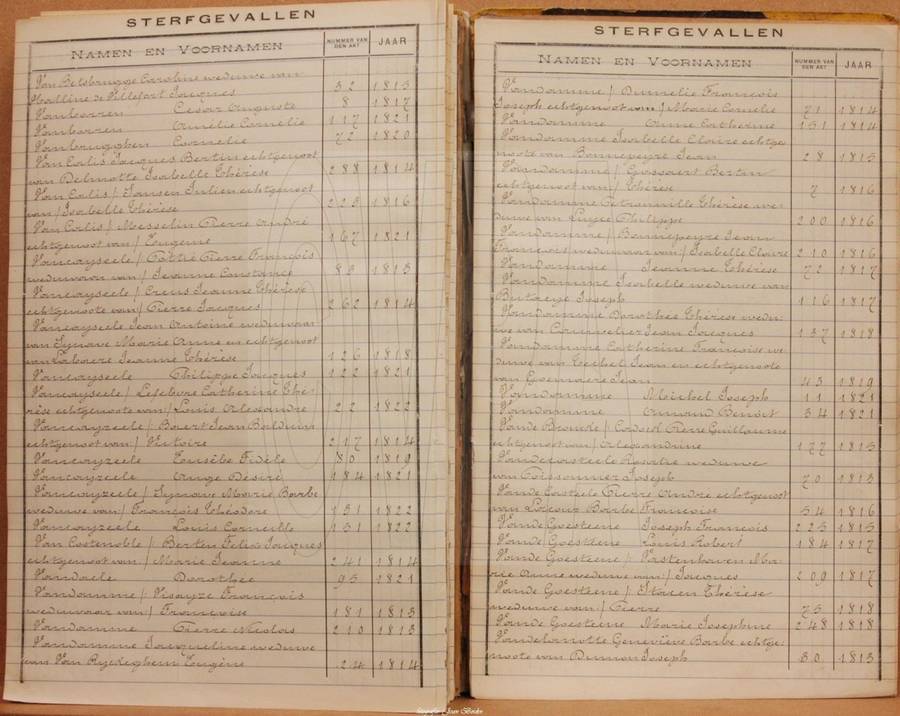 STERFGEVALLEN
NAMEN EN VOORNAMEN NUMMER VAN DEN AKT JAAR
Van Betsbrugge Caroline weduwe van
Hoelline de Villefort Jacques 32 1813
Vanboorren César Auguste 8 1817
Vanboorren Amélie Cornelie 117 1821
Vanbrugghen Cornelie 72 1820
Van Calis Jacques Bertin echtgenoot
van Delmotte Isabelle Thérèse 288 1814
Van Calis / Jansen Julien echtgenoot
van / Isabelle Thérèse 225 1816
Van Calis / Messelin Pierre André
echtgenoot van / Eugenie 167 1821
Vancayseele / Cottié Pierre François
weduwaar van / Jeanne Constance 83 1813
Vancayseele / Creus Jeanne Thérèse
echtgenoote van / Pierre Jacques 262 1814
Vancayseele Jean Antoine weduwaar
van Synave Marie Anne en echtgenoot
van Labaere Jeanne Thérèse 126 1818
Vancayseele Philippe Jacques 122 1821
Vancayseele / Lefebvre Catherine Thé-
rèse echtgenoote van / Louis Alexandre 22 1822
Vancayzeele / Boort Jean Bolduin
echtgenoot van / Victoire 217 1814
Vancayzeele Eusèbe Fidèle 80 1819
Vancayzeele Ange Désiré 184 1821
Vancayzeele / Synave Marie Barbe
weduwe van / François Théodore 131 1822
Vancayzeele Louis Corneille 151 1822
Van Costenoble / Bertin Felix Jacques
echtgenoot van / Marie Jeanne 241 1814
Vandaele Dorothée 95 1821
Vandamme / Visayze François
weduwaar van / Françoise 181 1813
Vandamme Pierre Nicolas 210 1813
Vandamme Jacqueline weduwe
van Van Ryckeghem Eugène 24 1814
STERFGEVALLEN
NAMEN EN VOORNAMEN NUMMER VAN DEN AKT JAAR
Vandamme / Dumelie François
Joseph echtgenoot van / Marie Cornelie 71 1814
Vandamme Anne Catherine 151 1814
Vandamme Isabelle Claire echtge
noote van Bonnepeyre Jean 28 1815
Vandamme / Goossaert Bertin
echtgenoot van / Thérèse 7 1816
Vandamme Petronnille Thérèse we-
duwe van Luyce Philippe 200 1816
Vandamme / Bonnepeyre Jean
François weduwaar van / Isabelle Claire 210 1816
Vandamme Jeanne Thérèse 72 1817
Vandamme Isabelle weduwe van
Butaeye Joseph 116 1817
Vandamme Dorothée Thérèse wedu-
we van Courvelier Jean Jacques 137 1818
Vandamme Catherine Françoise we
duwe van Jean en echtgenoote
van Goemaere Jean 43 1819
Vandamme Michel Joseph 11 1821
Vandamme Armand Benoit 34 1821
Vande Brouke / Pierre Guillaume
echtgenoot van / Alexandrine 177 1815
Vandecasteele Rosalie weduwe
van Poissonnier Joseph 70 1813
Vande Casteele Pierre Andre echtgenoot
van Barbe Françoise 54 1816
Vande Goesteene Joseph François 225 1815
Vande Goesteene Louis Robert 184 1817
Vande Goesteene / Vastenhaven Ma
rie Anne weduwe van / Jacques 209 1817
Vande Goesteene / Stalen Thérèse
weduwe van / Pierre 75 1818
Vande Goesteene Marie Josephine 248 1818
Vandelanotte Geneviève Barbe echtge-
noote van Dumon Joseph 30 1813